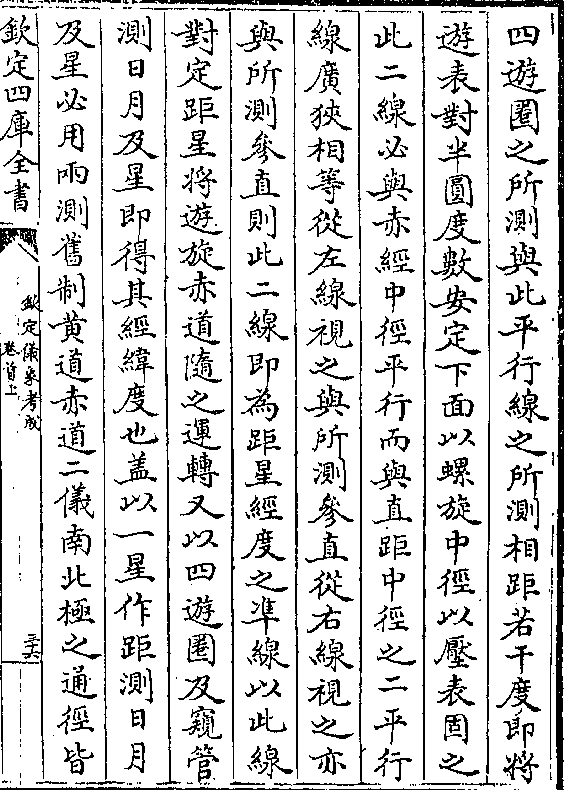 四遊圏之所測與此平行線之所測相距若干度即將
遊表對半圓度數安定下面以螺旋中徑以壓表固之
此二線必與赤經中徑平行而與直距中徑之二平行
線廣狹相等從左線視之與所測參直從右線視之亦
與所測參直則此二線即為距星經度之準線以此線
對定距星將遊旋赤道隨之運轉又以四遊圏及窺管
測日月及星即得其經緯度也盖以一星作距測日月
及星必用兩測舊制黄道赤道二儀南北極之通徑皆
欽定四庫全書
欽定儀象考成
卷首上
三六